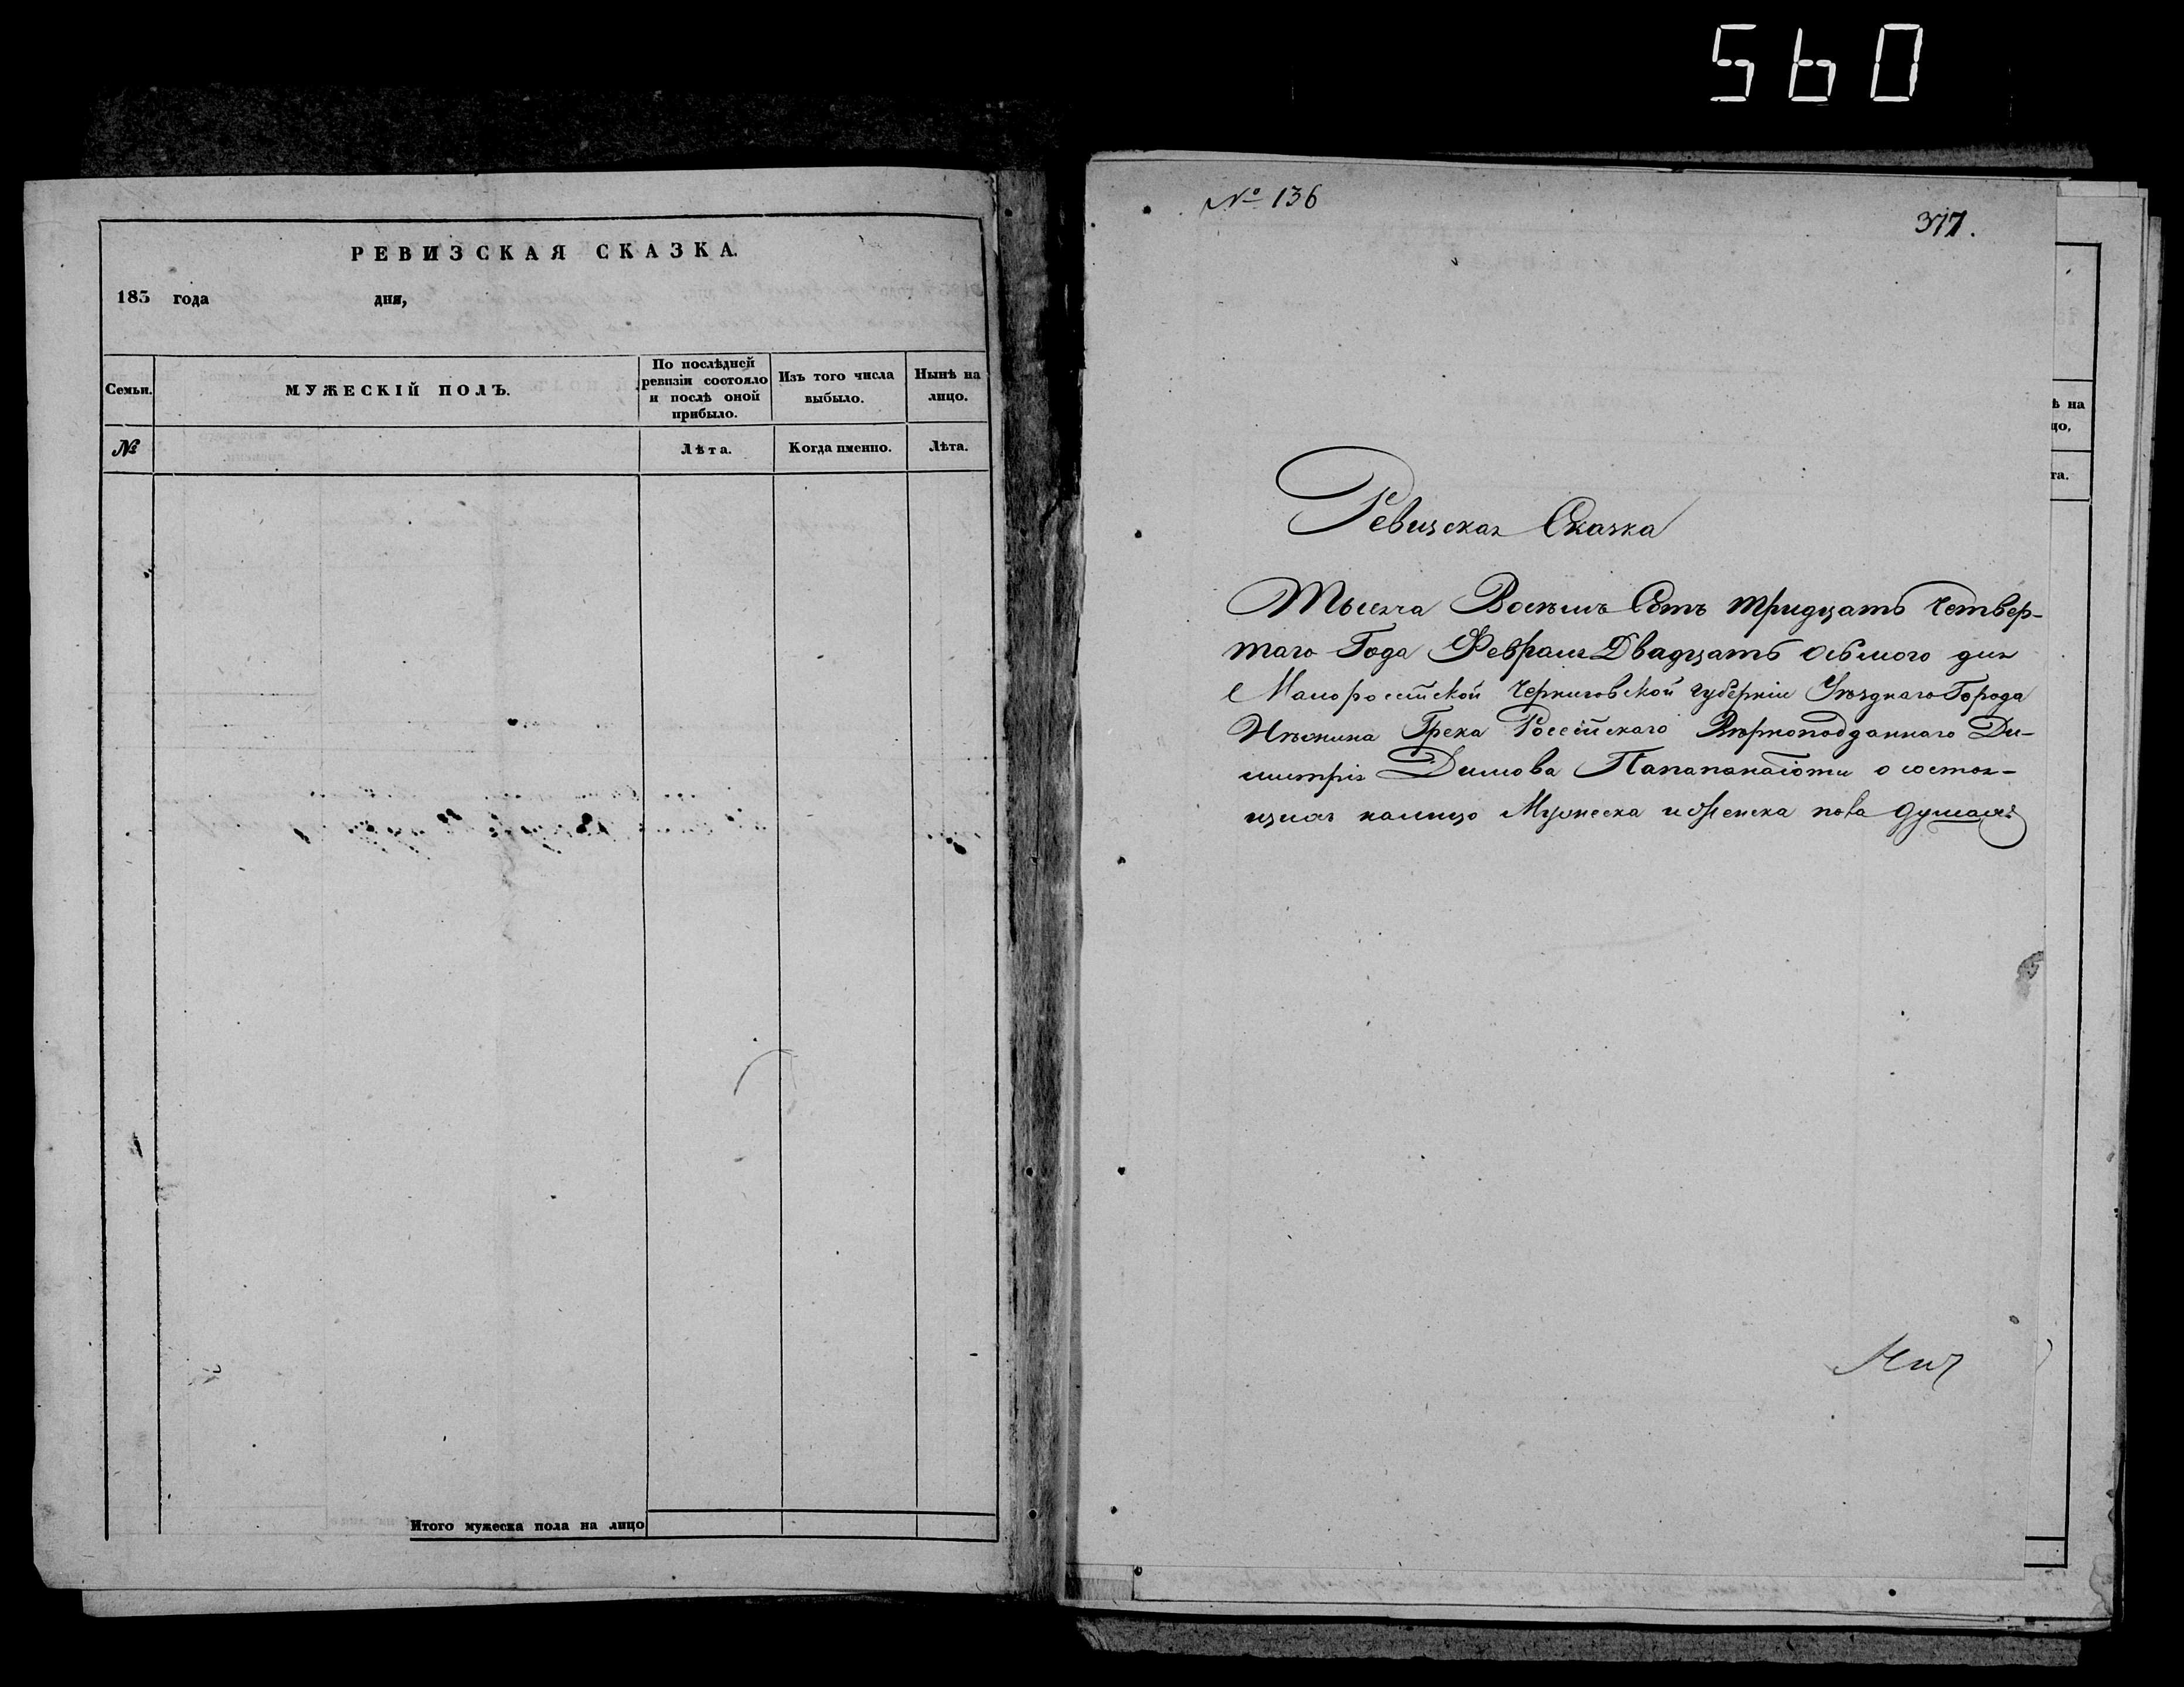 560
РЕВИЗСКАЯ СКАЗКА.
183 года дня,
Семьи.
МУЖЕСКІЙ ПОЛЪ.
По послѣдней
ревизіи состояло
и послѣ оной
прибыло.
Изъ того числа
выбыло.
Нынѣ на
лицо.
№
Лѣта.
Когда именно.
Лѣта.
Итого мужеска пола на лицо
№ 136
317.
Ревизская Сказка
Тысяча Восѣмъ Сотъ тридцать четвер-
таго Года Февраля Двадцать осьмого дня
Малороссійской Черниговской губерніи Уѣзднаго Города
Нѣжина Грека Россійскаго Вѣрноподданнаго Ди-
митрія Димова Папапанаіоти о состоя-
щихъ налицо Мужеска и Женска пола душахъ
ѣ на
цо,
та.